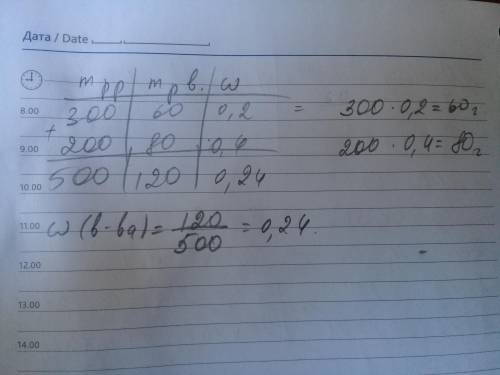 Дата / Date
m рр | m р в. | ω
8.00 300 | 60 | 0,2 = 300 · 0,2 = 60 г
+
9.00 200 | 80 | 0,4 200 · 0,4 = 80 г
10.00 500 | 120 | 0,24
11.00 ω (в-ва) = 120/500 = 0,24.
12.00
13.00
14.00